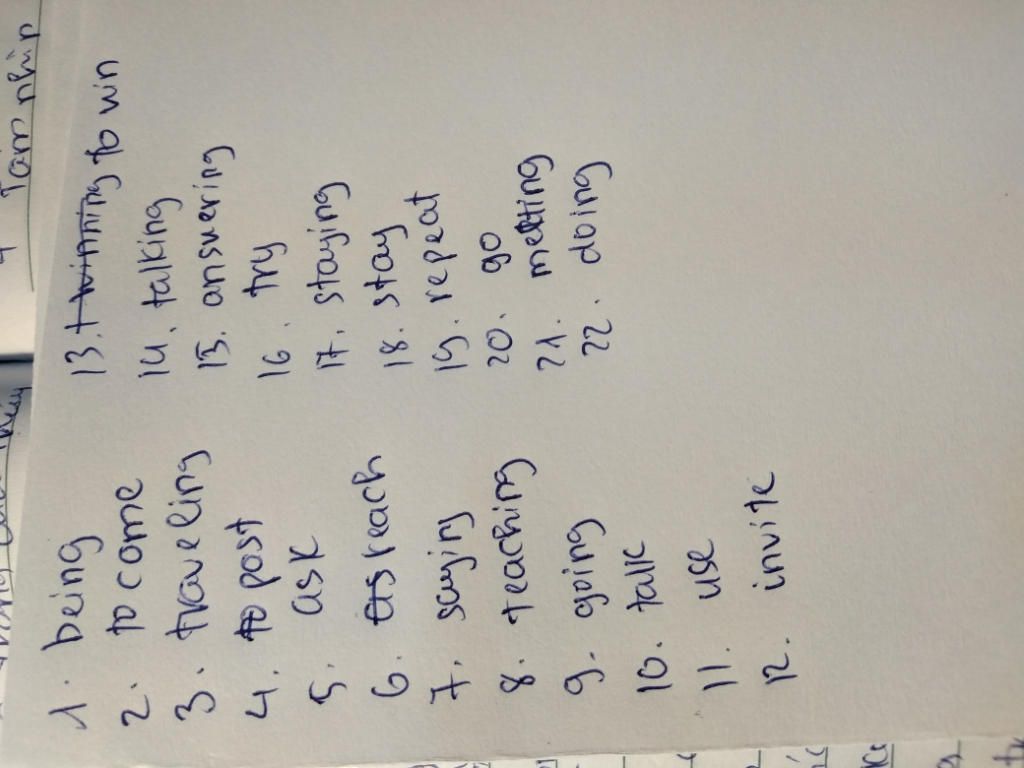 1. being
2. to come
3. traveling
4. to post
5. ask
6. reach
7. saying
8. teaching
9. going
10. talk
11. use
12. invite
13. winning to win
14. talking
15. answering
16. try
17. staying
18. stay
19. repeat
20. go
21. meeting
22. doing